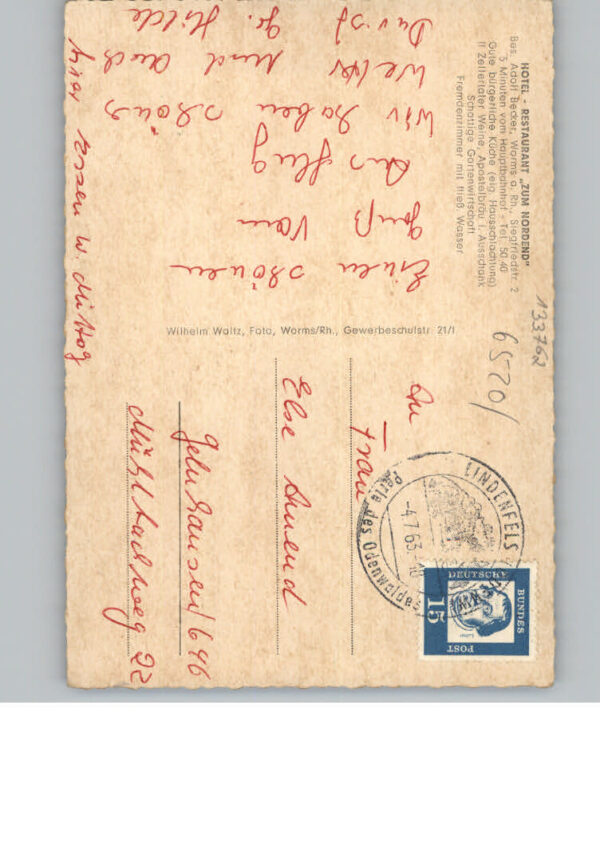 HOTEL - RESTAURANT „ZUM NORDEND"
Bes. Adolf Becker, Worms a. Rh., Siegfriedstr. 2
5 Minuten vom Hauptbahnhof - Tel. 50 40
Gute bürgerliche Küche (eig. Hausschlachtung)
ff Zellertaler Weine, Apostelbräu i. Ausschank
Schattige Gartenwirtschaft
Fremdenzimmer mit fließ. Wasser
Einen schönen
Gruß vom
Ausflug
Wir haben schönes
Wetter und auch
Durst gr. Hilde
hier essen w. Mittag
Wilhelm Waltz, Foto, Worms/Rh., Gewerbeschulstr. 21/I
133762
6520/
An
Frau
Else Amend
Gelnhausen / 646
Mühlbachweg 22
LINDENFELS
-4.7.63-10
Perle des Odenwaldes
DEUTSCHE
BUNDES
POST
15